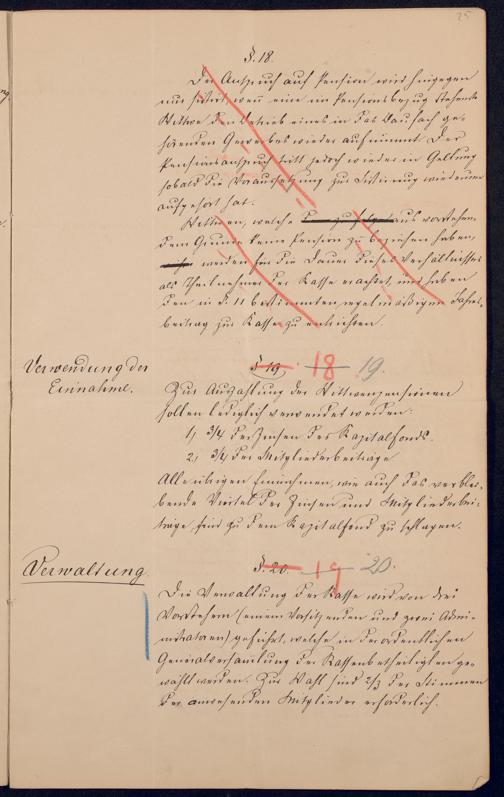 25
§. 18.
Der Anspruch auf Pension wird hingegen
nur sistirt, wenn eine im Pensionsbezug stehende
Wittwe den Betrieb eines in das Baufach ge-
hörenden Gewerbes wieder aufnimmt. Der
Pensionsanspruch tritt jedoch wieder in Geltung
sobald die Voraussetzung zur Sistirung wiederum
aufgehört hat.
Wittwen, welche aus vorstehen-
dem Grunde keine Pension zu beziehen haben,
werden für die Dauer dieses Verhältnisses
als Theilnehmer der Kasse erachtet, und haben
den in §. 11 bestimmten, regelmäßigen Jahres-
beitrag zur Kasse zu entrichten.
Verwendung der
Einnahme.
§ 19 18 19.
Zur Auszahlung der Wittwenpensionen
sollen lediglich verwendet werden:
1, 3/4 der Zinsen des Kapitalfonds.
2, 3/4 der Mitgliederbeiträge
Alle übrigen Einnahmen, wie auch das verblei-
bende Viertel der Zinsen und Mitgliederbei-
träge, sind zu dem Kapitalfond zu schlagen.
Verwaltung.
§. 20. 19 20.
Die Verwaltung der Kasse wird von drei
Vorstehern (einem Vorsitzenden und zwei Admi-
nistratoren) geführt, welche in der ordentlichen
Generalversamlung der Kassenbetheiligten ge-
wählt werden. Zur Wahl sind 2/3 der Stimmen
der anwesenden Mitglieder erforderlich.